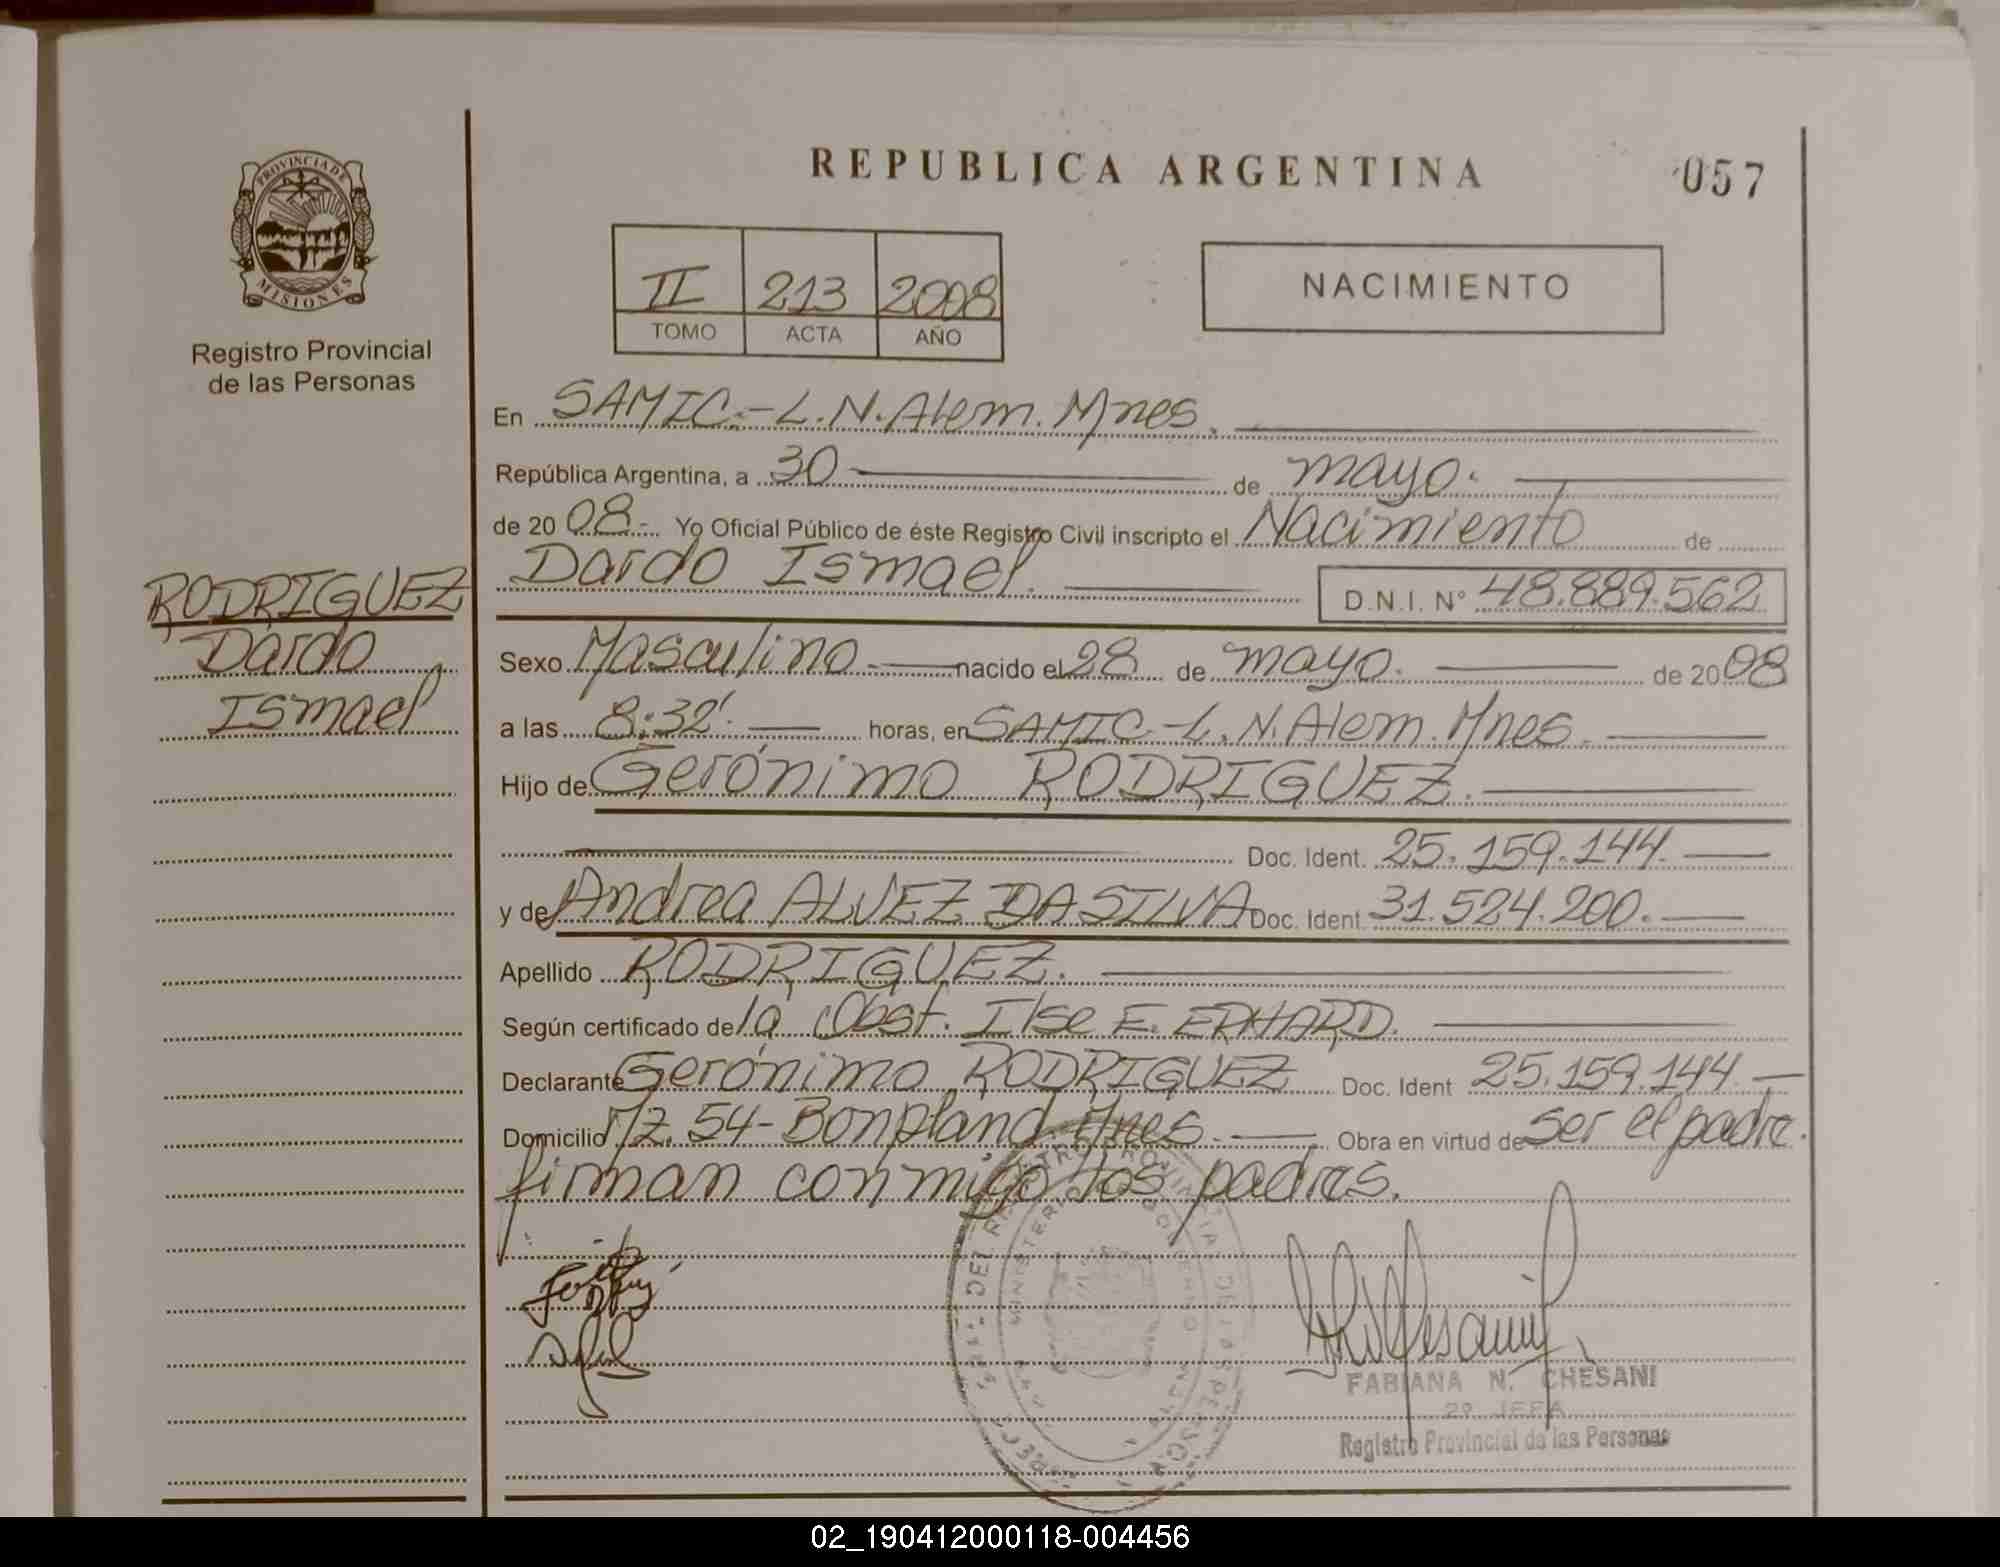 PROVINCIA DE
MISIONES
Registro Provincial
de las Personas
RODRIGUEZ
Dardo
Ismael
REPUBLICA ARGENTINA
057
II 213 2008
TOMO ACTA AÑO
NACIMIENTO
En SAMIC.-L.N.Alem.Mnes.
República Argentina, a 30 de mayo.
de 20 08.- Yo Oficial Público de éste Registro Civil inscripto el Nacimiento de
Dardo Ismael. D.N.I. N° 48.889.562
Sexo Masculino nacido el 28 de mayo. de 20 08
a las 8:32'. horas, en SAMIC-L.N.Alem.Mnes.
Hijo de Gerónimo RODRIGUEZ.
Doc. Ident. 25.159.144.
y de Andrea ALVEZ DA SILVA Doc. Ident. 31.524.200.
Apellido RODRIGUEZ.
Según certificado de la Obst. Ilse E. ERHARD.
Declarante Gerónimo RODRIGUEZ Doc. Ident 25.159.144
Domicilio Mz. 54-Bonpland.Mnes. Obra en virtud de ser el padre.
firman conmigo los padres.
FABIANA N. CHESANI
2º JEFA
Registro Provincial de las Personas
02_190412000118-004456